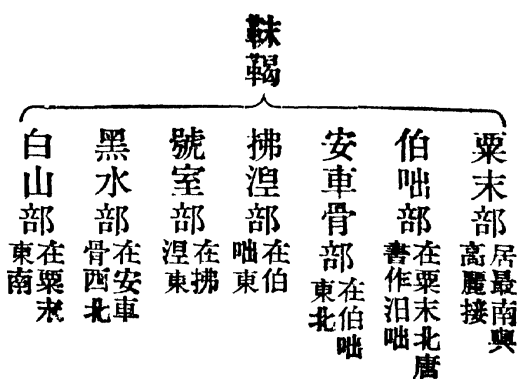 靺鞨
粟末部 居最南與高麗接
伯咄部 在粟末北唐書作汨咄
安車骨部 在伯咄東北
拂湼部 在伯咄東
號室部 在拂湼東
黑水部 在安車骨西北
白山部 在粟末東南